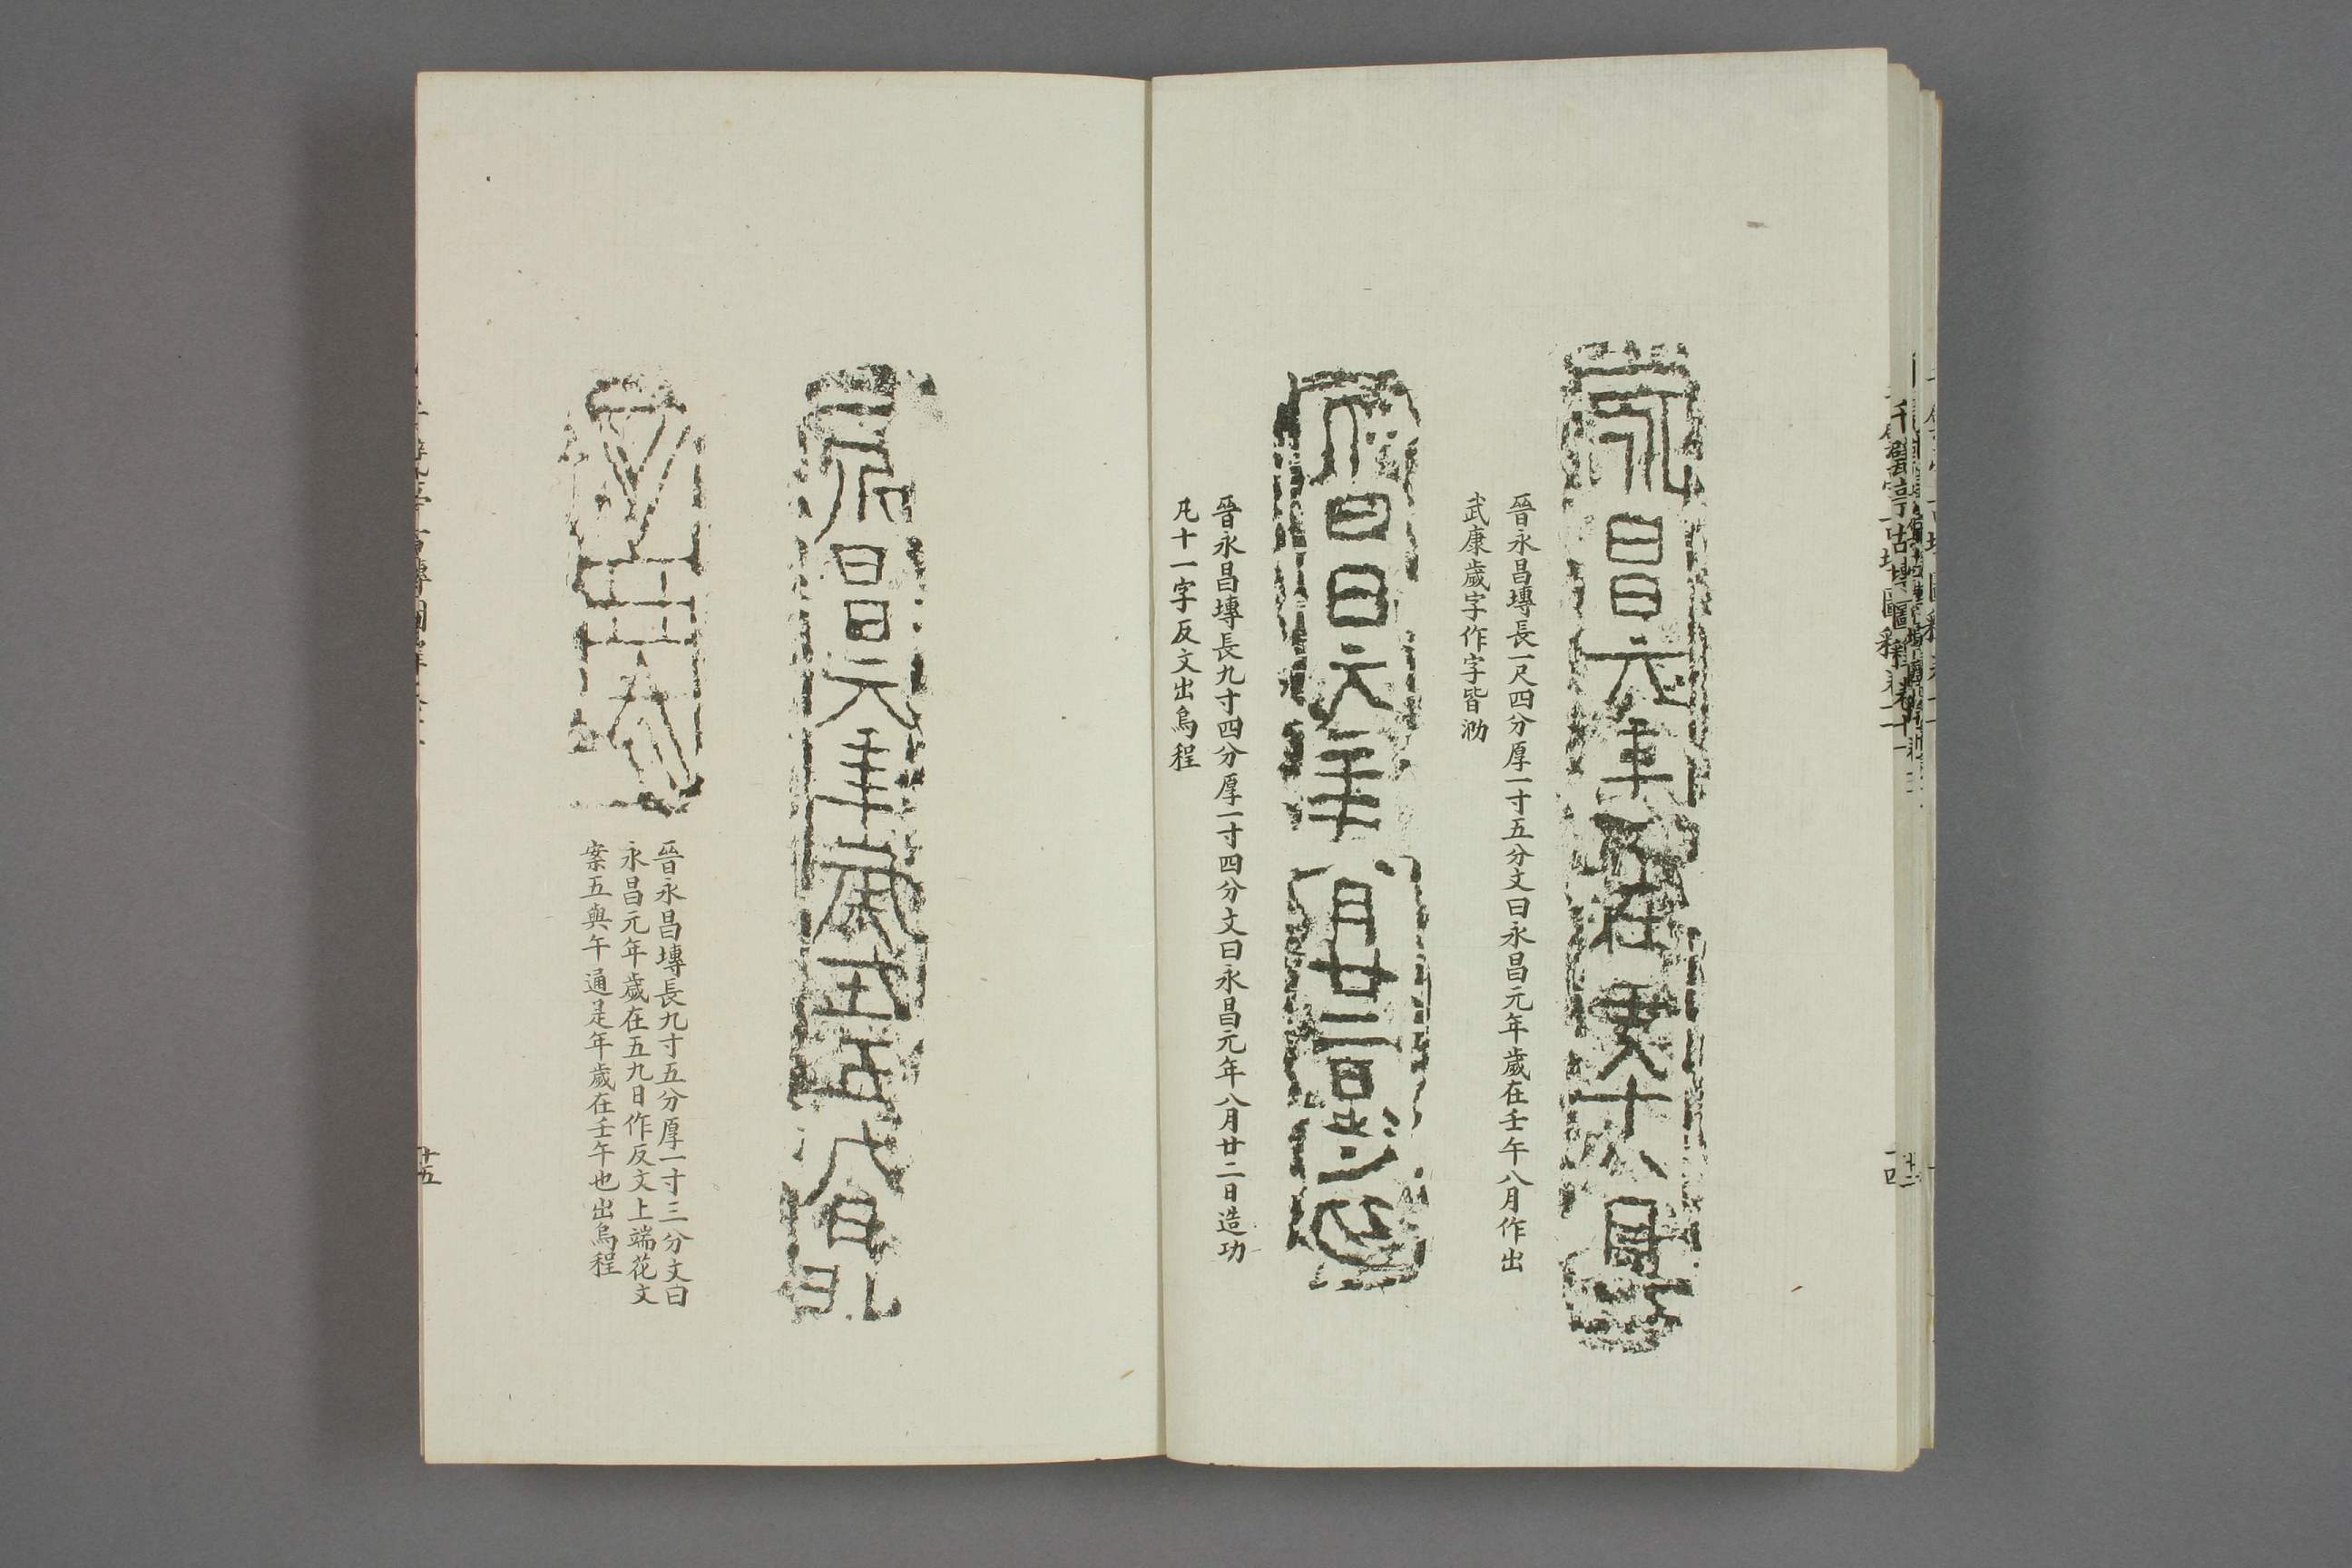 永昌元年
在
月
晉永昌塼長一尺四分厚一寸五分文曰永昌元年歲在壬午八月作出
武康歲字作字皆泐
昌元年
月廿二日造
晉永昌塼長九寸四分厚一寸四分文曰永昌元年八月廿二日造功
凡十一字反文出烏程
永昌元年歲在五九日作
晉永昌塼長九寸五分厚一寸三分文曰
永昌元年歲在五九日作反文上端花文
案五與午通是年歲在壬午也出烏程
十五